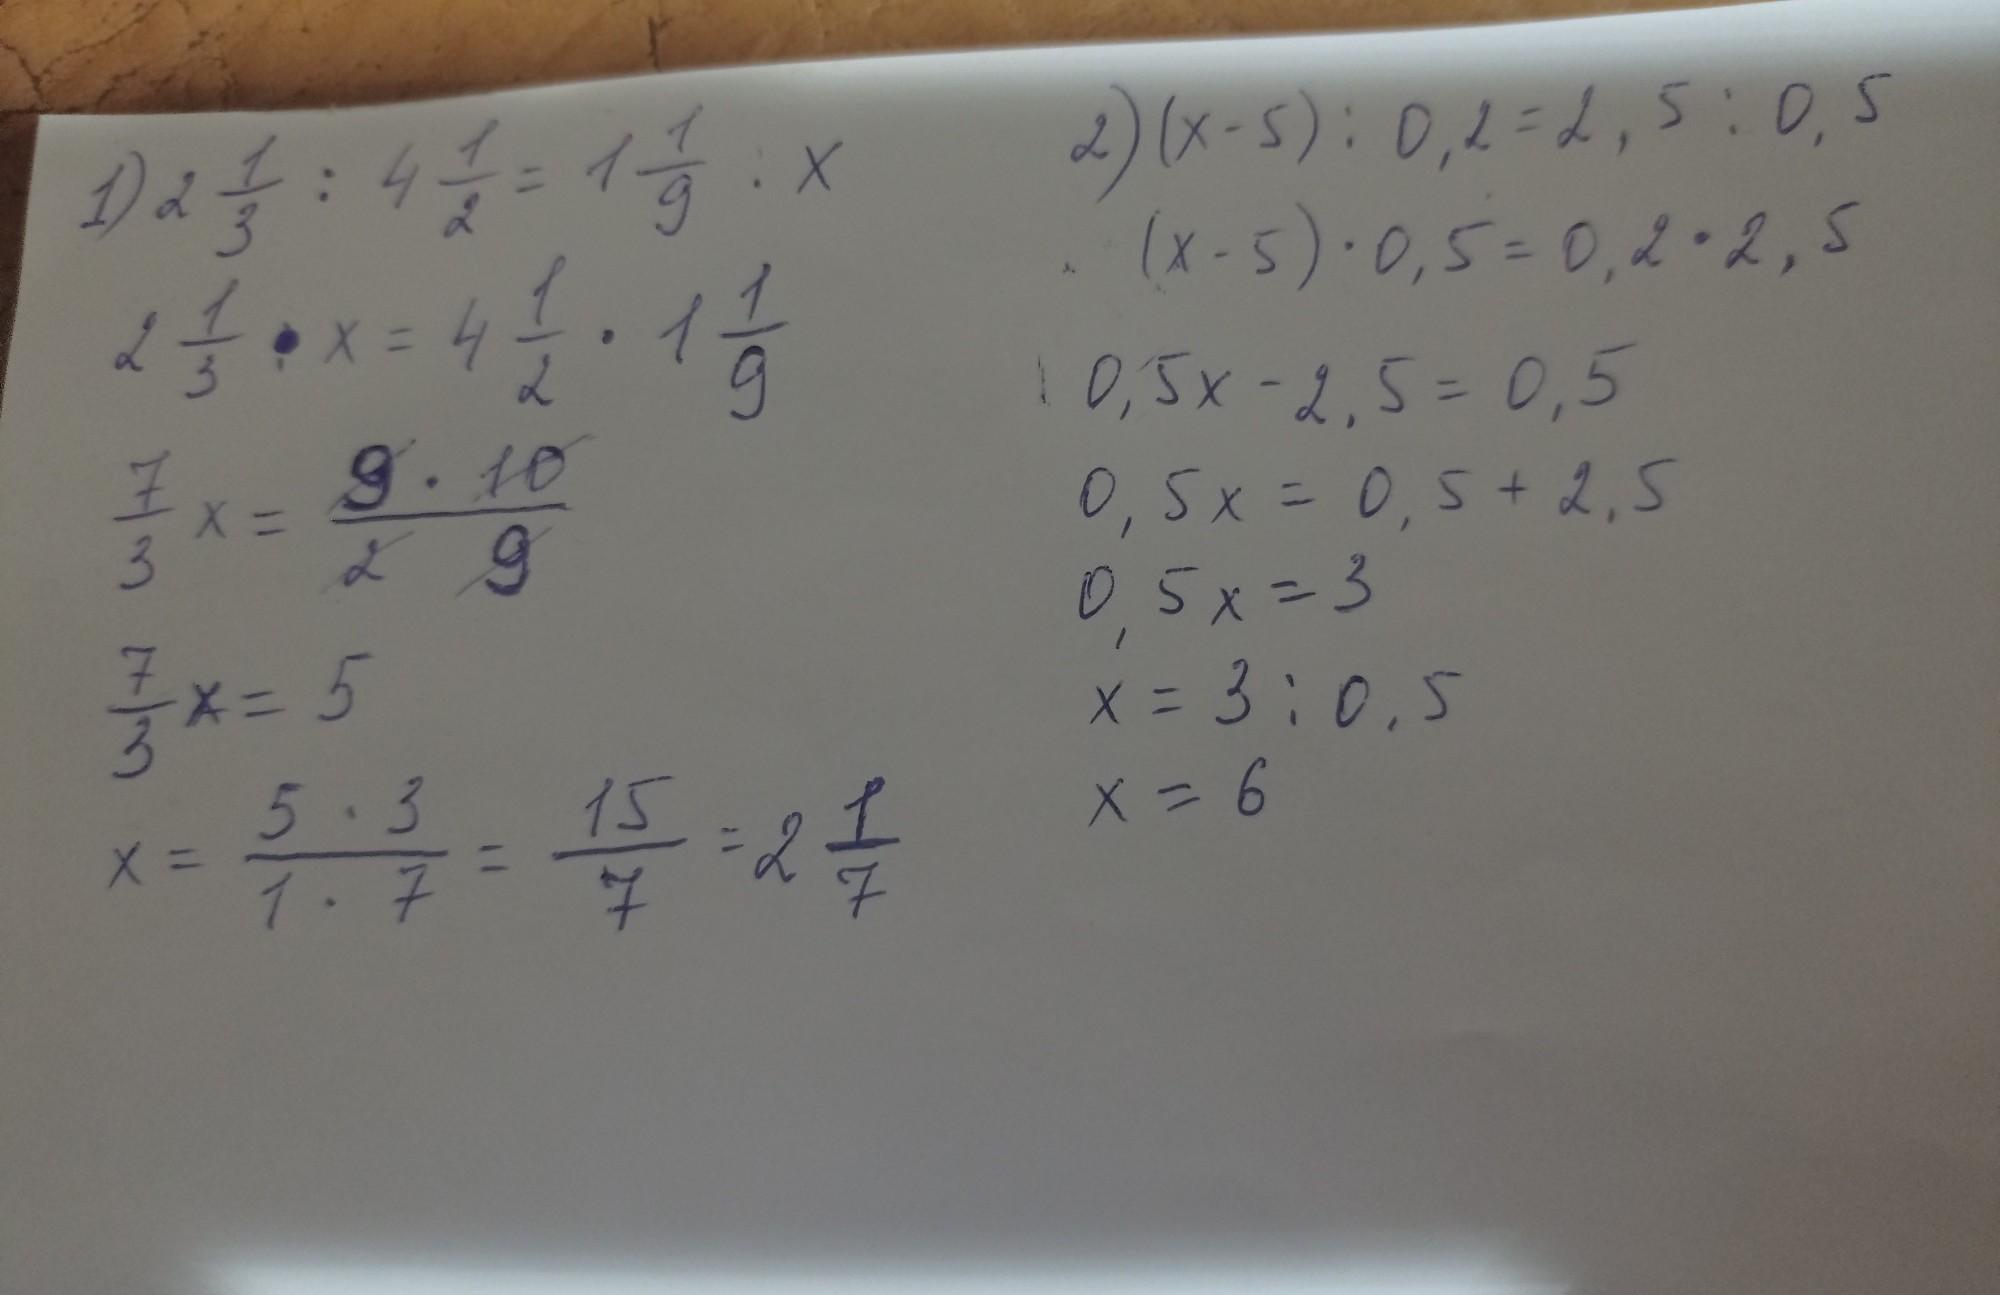 1) 2 1/3 : 4 1/2 = 1 1/9 : x
2 1/3 • x = 4 1/2 • 1 1/9
7/3 x = 9 • 10 / 2 9
7/3 x = 5
x = 5 • 3 / 1 • 7 = 15/7 = 2 1/7
2) (x - 5) : 0,2 = 2,5 : 0,5
(x - 5) • 0,5 = 0,2 • 2,5
0,5x - 2,5 = 0,5
0,5x = 0,5 + 2,5
0,5x = 3
x = 3 : 0,5
x = 6